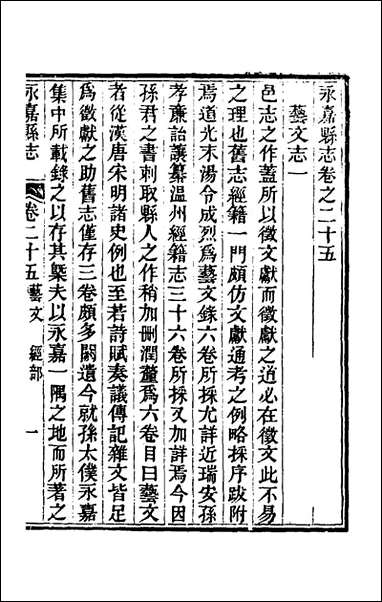 永嘉縣志卷之二十五
藝文志一
邑志之作蓋所以徵文獻而徵獻之道必在徵文此不易
之理也舊志經籍一門頗仿文獻通考之例略採序跋附
焉道光末湯令成烈爲藝文錄六卷所採尤詳近瑞安孫
孝廉詒讓纂溫州經籍志三十六卷所採又加詳焉今因
孫君之書刺取縣人之作稍加刪潤釐爲六卷目曰藝文
者從漢唐宋明諸史例也至若詩賦奏議傳記雜文皆足
爲徵獻之助舊志僅存三卷頗多闕遺今就孫太僕永嘉
集中所載錄之以存其槩夫以永嘉一隅之地而所著之
永嘉縣志 卷二十五 藝文 經部 一